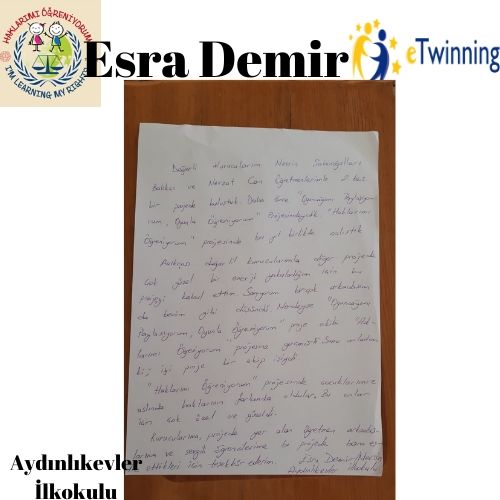 HAKLARIMI ÖĞRENİYORUM
I'M LEARNING MY RIGHTS
Esra Demir
eTwinning
Değerli Kurucularım Nesrin
Balıkçı ve Nevzat Can Öğretmenlerimle 2. kez
bir projede buluştuk. Daha önce "Oyuncağımı Paylaşıyo-
rum, Oyunla Öğreniyorum" Projesindeydik. "Haklarımı
Öğreniyorum" projesinde bir yıl birlikte çalıştık
değerli kurucularımla diğer projede
çok güzel bir enerji yakaladığım için bu
projeyi kabul ettim Sanıyorum birçok arkadaşım
da benim gibi düşündü. Neredeyse "Oyuncağımı
Paylaşıyorum, Oyunla Öğreniyorum" proje ekibi "Hak-
larımı Öğreniyorum" projesine
iyi proje bir ekip işiydi
"Haklarımı Öğreniyorum" projesinde çocuklarımız
aslında haklarının farkında oldular. Bu onlar
için çok özel ve güzeldi.
Kurucularıma, projede yer alan öğretmen arkadaş-
larıma ve sevgili öğrencilerime bu projede bana eş-
lik ettikleri için teşekkür ederim. Esra Demir/Mersin
Aydınlıkevler İlkokulu
Aydınlıkevler
İlkokulu